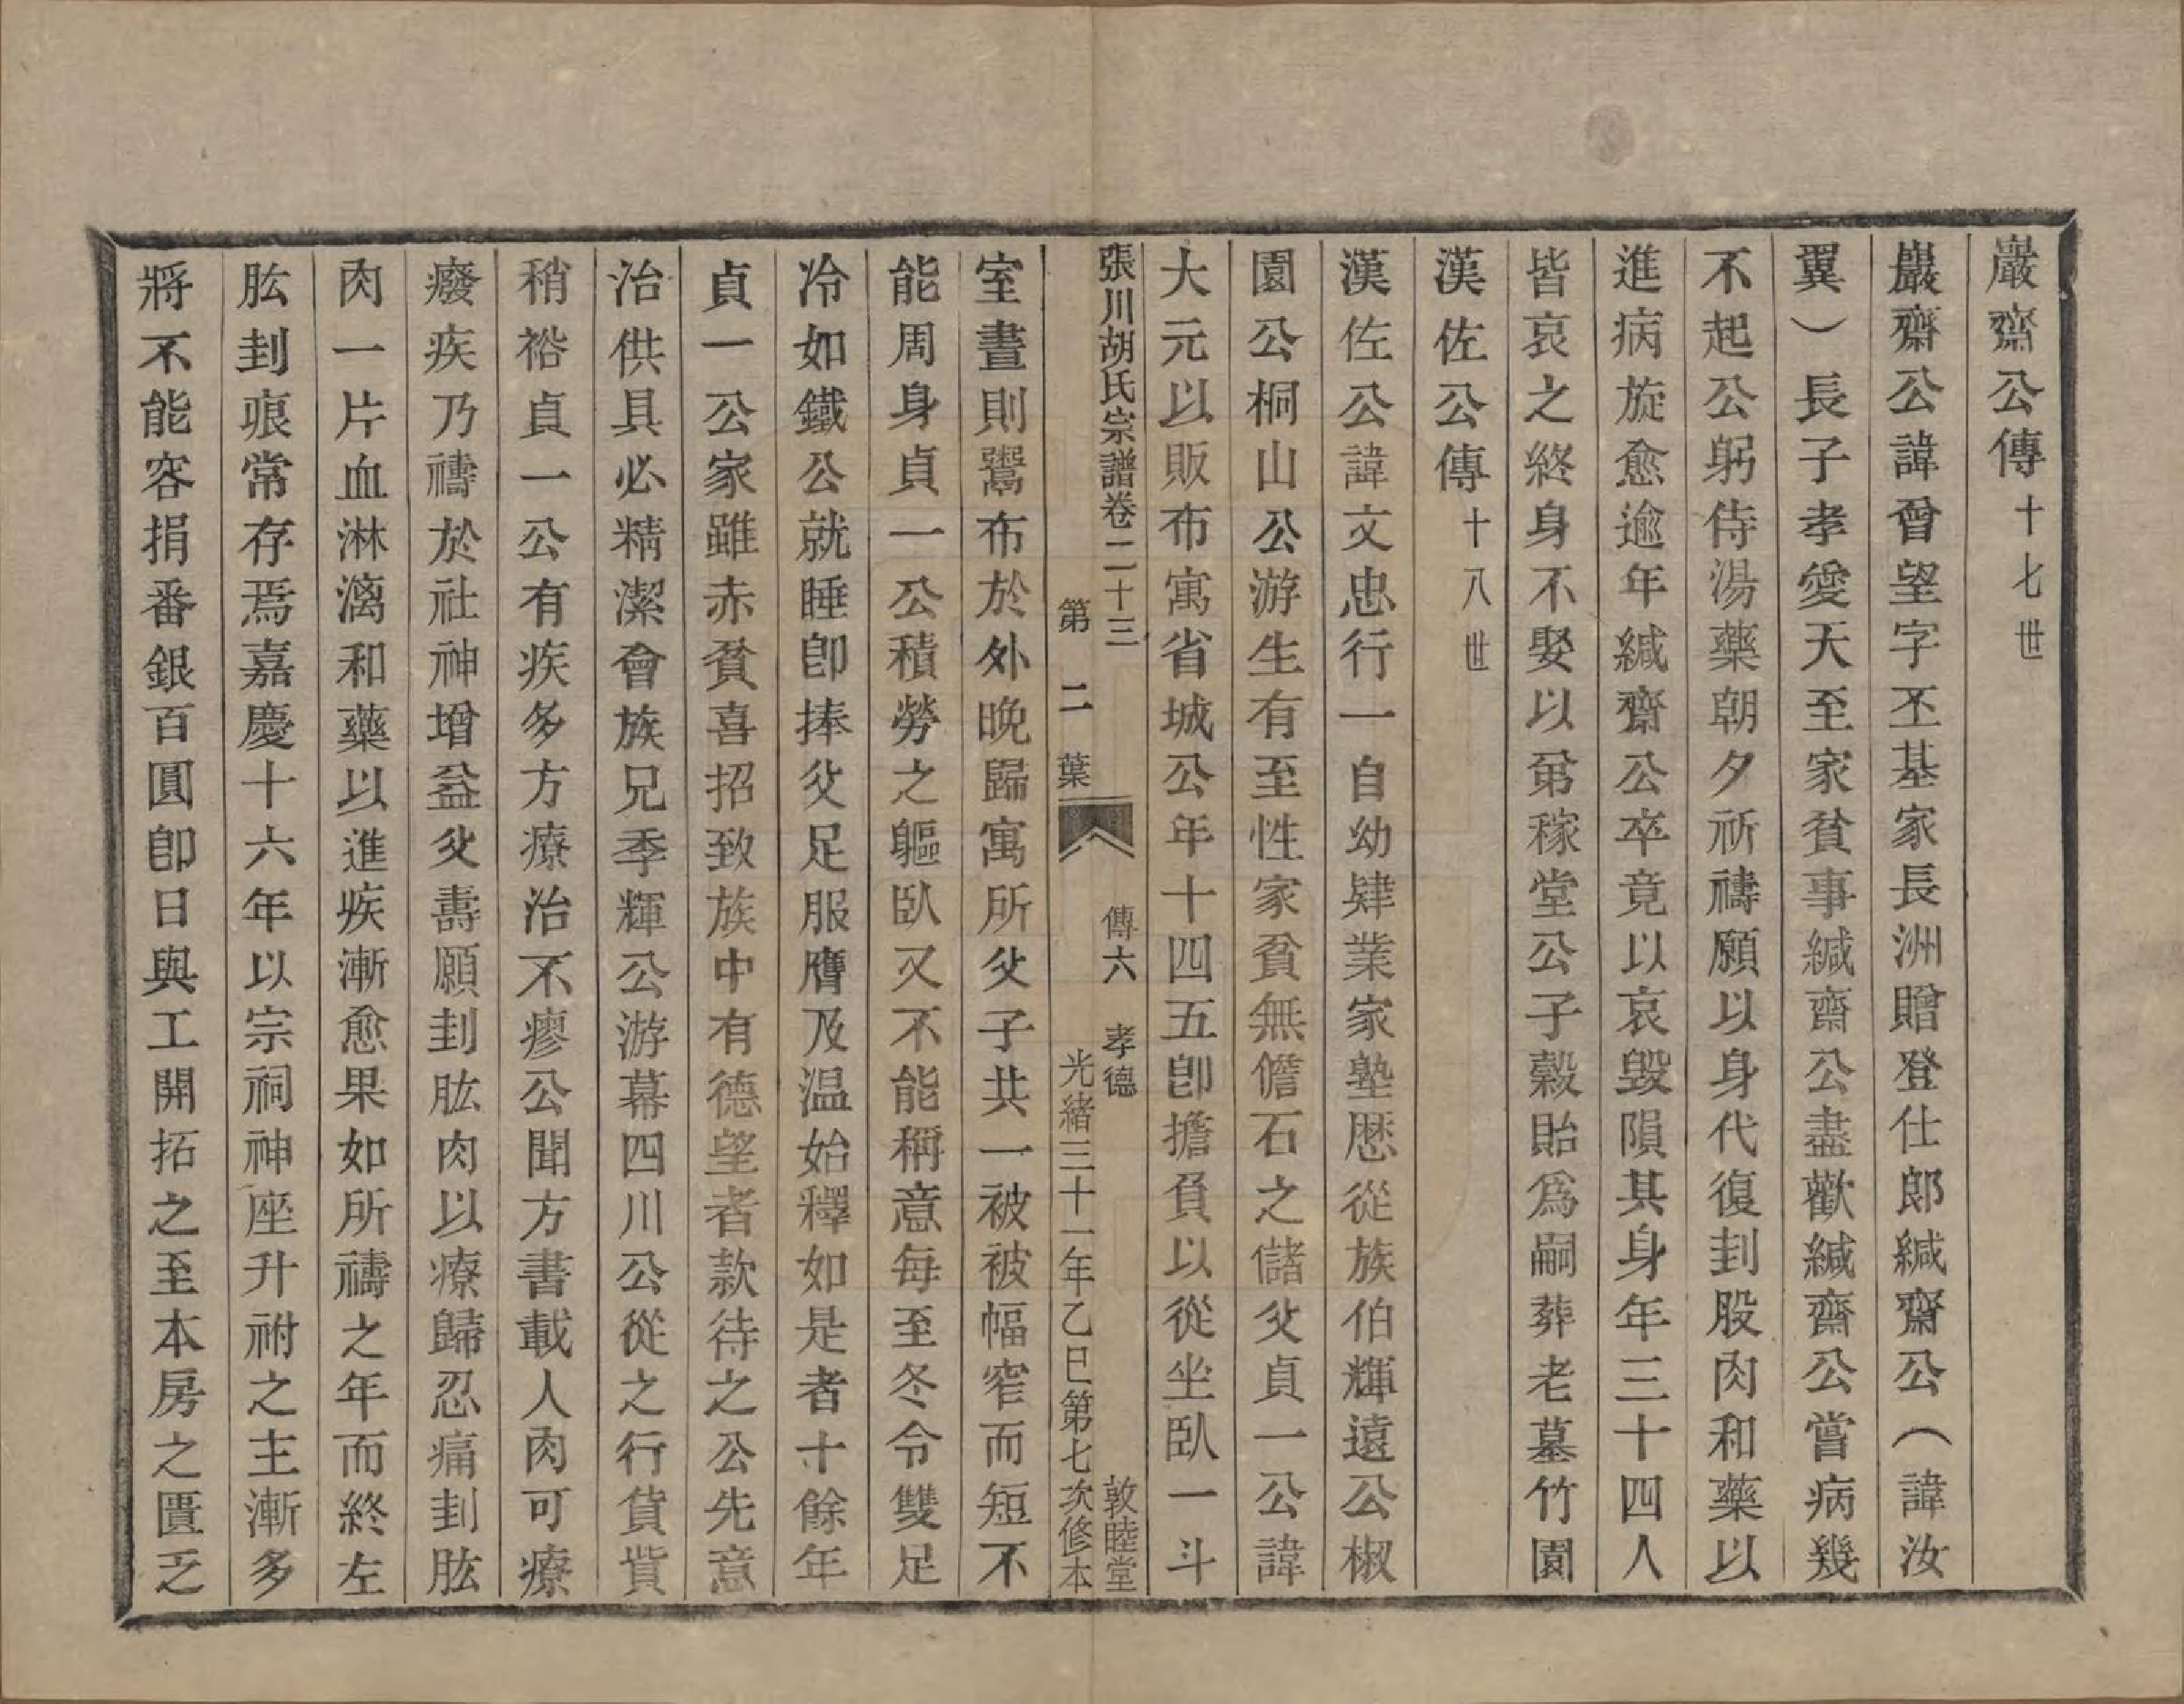 巖齋公傳十七世
巖齋公諱曾望字丕基家長洲贈登仕郎緘齋公（諱汝
翼）長子孝愛天至家貧事緘齋公盡歡緘齋公嘗病幾
不起公躬侍湯藥朝夕祈禱願以身代復刲股肉和藥以
進病旋愈逾年緘齋公卒竟以哀毀隕其身年三十四人
皆哀之終身不娶以弟稼堂公子穀貽爲嗣葬老墓竹園
漢佐公傳十八世
漢佐公諱文忠行一自幼肄業家塾歷從族伯輝遠公椒
園公桐山公游生有至性家貧無儋石之儲父貞一公諱
大元以販布寓省城公年十四五卽擔負以從坐臥一斗
張川胡氏宗譜卷二十三 傳六 孝德 敦睦堂
第二葉 光緒三十一年乙巳第七次修本
室晝則鬻布於外晚歸寓所父子共一被被幅窄而短不
能周身貞一公積勞之軀臥又不能稱意每至冬令雙足
冷如鐵公就睡卽捧父足服膺及温始釋如是者十餘年
貞一公家雖赤貧喜招致族中有德望者款待之公先意
治供具必精潔會族兄季輝公游幕四川公從之行貨貲
稍裕貞一公有疾多方療治不瘳公聞方書載人肉可療
癈疾乃禱於社神增益父壽願刲肱肉以療歸忍痛刲肱
肉一片血淋漓和藥以進疾漸愈果如所禱之年而終左
肱刲痕常存焉嘉慶十六年以宗祠神座升祔之主漸多
將不能容捐番銀百圓卽日與工開拓之至本房之匱乏